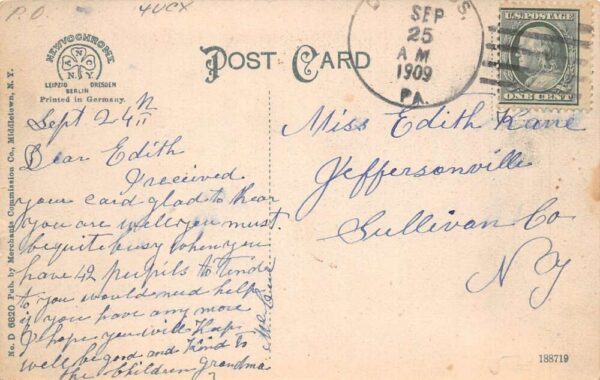 P.O. 4UCX
NEWVOCHROME
A N C
N.Y.
LEIPZIG DRESDEN
BERLIN
Printed in Germany.
POST CARD
SEP
25
A M
1909
PA.
U.S. POSTAGE
ONE CENT
Sept 24th
Dear Edith
I received
your card glad to hear
you are well you must
be quite busy when you
have 42 pupils to tende
to you would need help
if you have any more
I hope you will Keep
well be good and Kind to
the Children Grandma
Miss Edith Kane
Jeffersonville
Sullivan Co
N Y
No. D 6820 Pub. by Merchants Commission Co., Middletown, N. Y.
188719